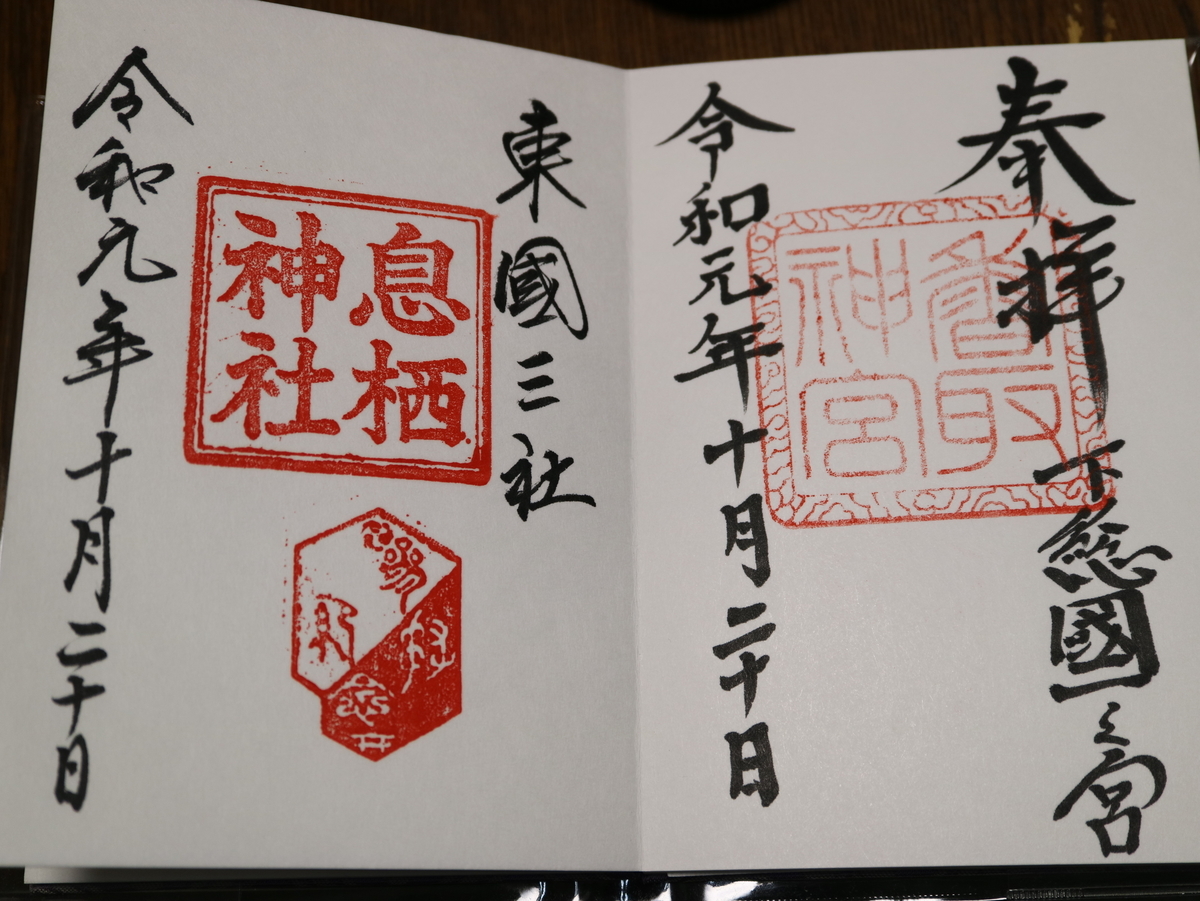 奉拝
下総國一之宮
香取
神宮
令和元年十月二十日
東國三社
息栖
神社
令和元年十月二十日